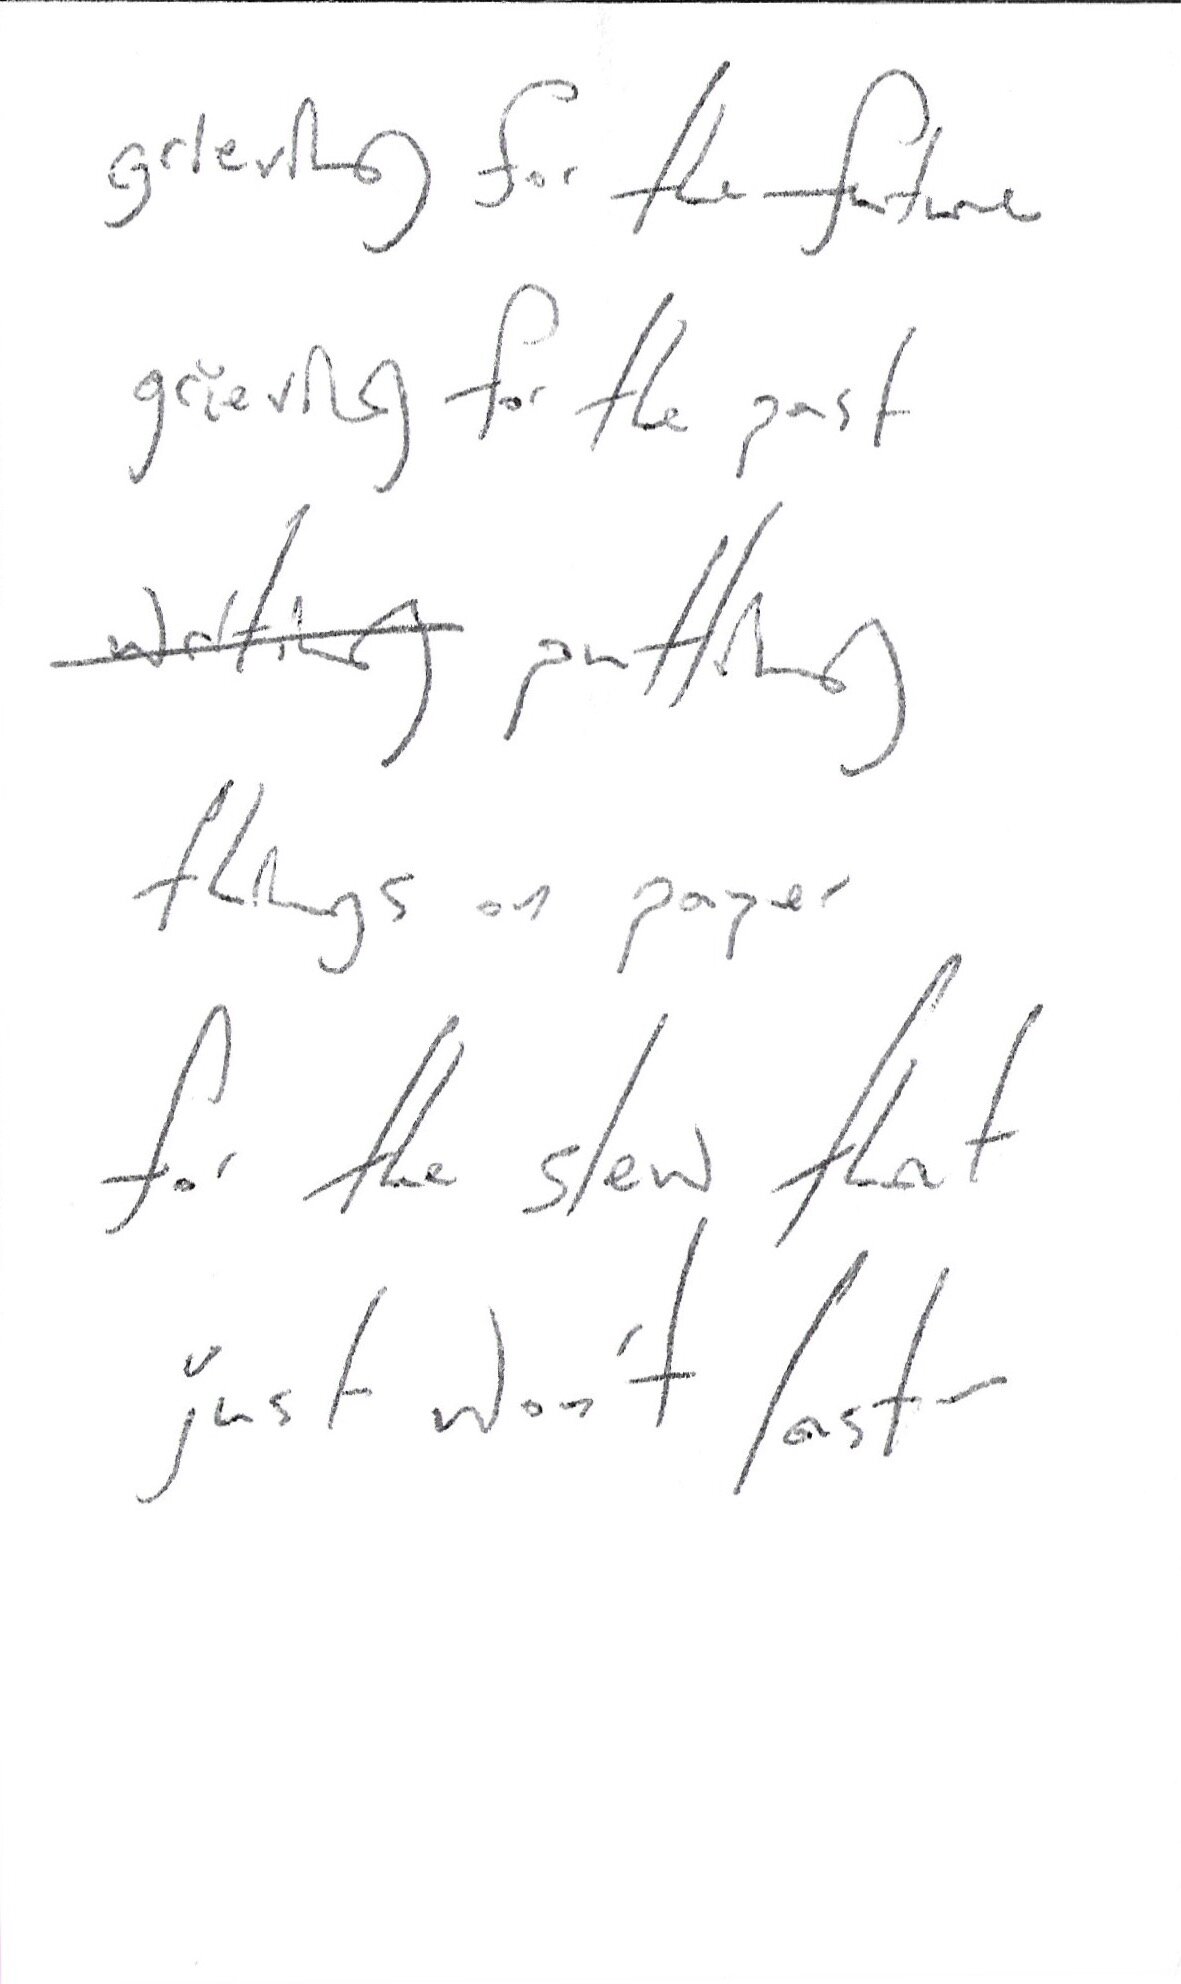 grieving for the future
grieving for the past
writing putting
things on paper
for the slew that
just won't last